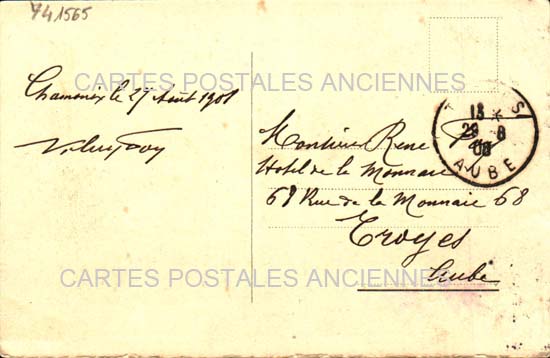 741565
CARTES POSTALES ANCIENNES
Chamonix le 27 Août 1908
Monsieur René
Hotel de la Monnaie
68 Rue de la Monnaie 68
Troyes
Aube
CARTES POSTALES ANCIENNES
13
29 8
08
AUBE